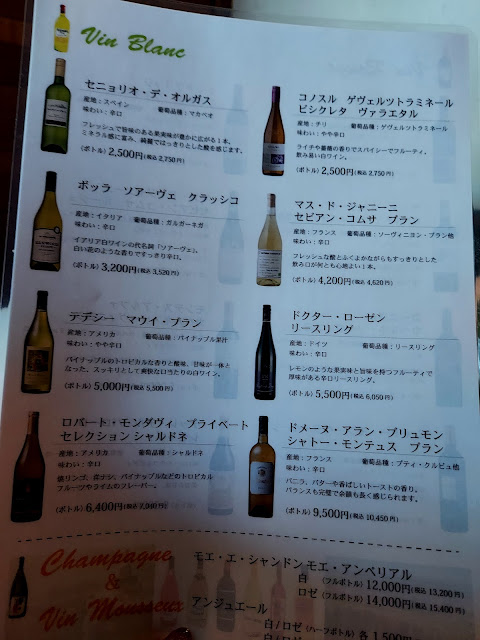 Vin Blanc
セニョリオ・デ・オルガス
産地：スペイン 葡萄品種：マカベオ
味わい：辛口
フレッシュで旨味のある果実味が豊かに広がる1本。
ミネラル感に富み、綺麗でほっそりとした酸を感じます。
(ボトル) 2,500円(税込2,750円)
コノスル ゲヴェルツトラミネール
ビシクレタ ヴァラエタル
産地：チリ 葡萄品種：ゲヴェルツトラミネール
味わい：やや辛口
ライチや薔薇の香りでスパイシーでフルーティ。
飲み易い白ワイン。
(ボトル) 2,500円(税込2,750円)
ボッラ ソアーヴェ クラッシコ
産地：イタリア 葡萄品種：ガルガーネガ
味わい：辛口
イタリア白ワインの代名詞「ソアーヴェ」。
白い花のような香りですっきり辛口。
(ボトル) 3,200円(税込3,520円)
マス・ド・ジャニーニ
セビアン・コムサ ブラン
産地：フランス 葡萄品種：ソーヴィニヨン・ブラン他
味わい：辛口
フレッシュな酸とふくよかながらもすっきりとした
飲み口が何とも心地よい1本。
(ボトル) 4,200円(税込4,620円)
テデシー マウイ・ブラン
産地：アメリカ 葡萄品種：パイナップル果汁
味わい：やや辛口
パイナップルのトロピカルな香りと酸味、甘味が一体と
なった、スッキリとして爽快な口当たりの白ワイン。
(ボトル) 5,000円(税込5,500円)
ドクター・ローゼン
リースリング
産地：ドイツ 葡萄品種：リースリング
味わい：辛口
レモンのような果実味と旨味を持つフルーティで
厚味がある辛口リースリング。
(ボトル) 5,500円(税込6,050円)
ロバート・モンダヴィ プライベート
セレクション シャルドネ
産地：アメリカ 葡萄品種：シャルドネ
味わい：辛口
焼リンゴ、洋ナシ、パイナップルなどのトロピカル
フルーツやライムのフレーバー。
(ボトル) 6,400円(税込7,040円)
ドメーヌ・アラン・ブリュモン
シャトー・モンテュス ブラン
産地：フランス 葡萄品種：プティ・クルビュ他
味わい：辛口
バニラ、バターや香ばしいトーストの香り。
バランスも完璧で余韻も長く感じられます。
(ボトル) 9,500円(税込10,450円)
Champagne
&
Vin Mousseux
モエ・エ・シャンドン モエ・アンペリアル
白 (フルボトル) 12,000円(税込13,200円)
ロゼ (フルボトル) 14,000円(税込15,400円)
アンジュエール
白/ロゼ (ハーフボトル) 各1,500円